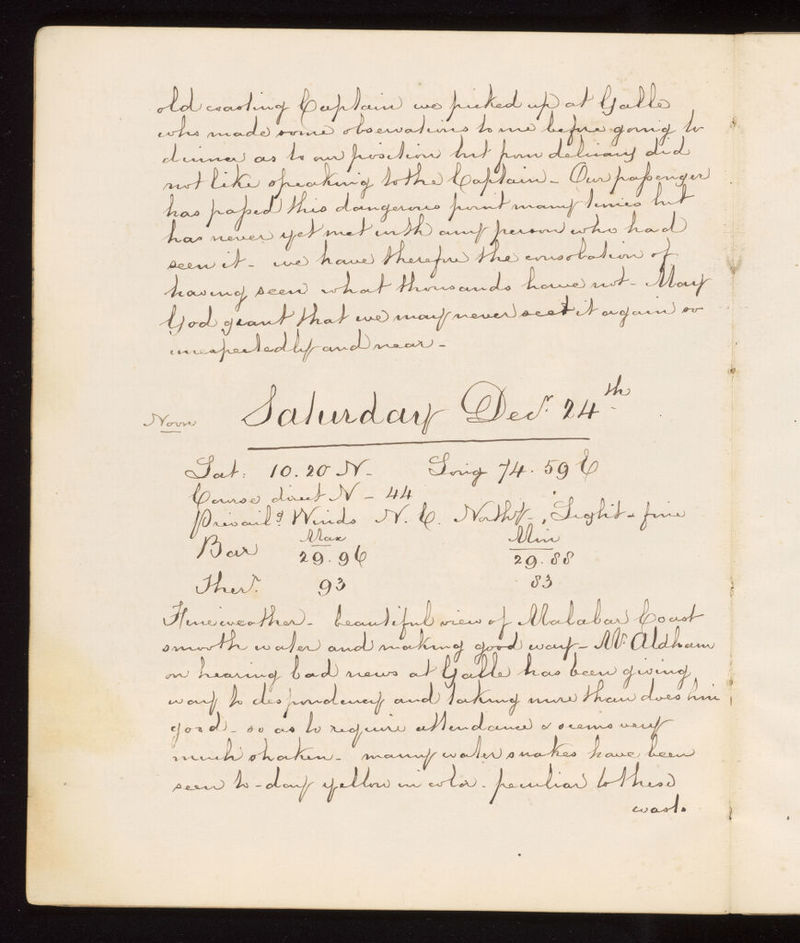 old coasting Captain we picked up at Galle
who made some observations to me before going to
dinner as to our position but from delicacy did
not like speaking to the Captain - Our passenger
has passed this dangerous point many times but
has never yet met with any person who had
seen it - we have therefore the consolation of
having seen what thousands have not - May
God grant that we may never see it again so
unexpectedly and near -
Noon Saturday Decr. 24th
Lat: 10. 20 N - Long 74. 59 E
Course direct N - 44
Prevailg Winds N. E. Northy -, Light - fine
Bar Max 29. 96 Min 29. 88
Ther. 93 83
Fine weather - beautiful view of Malabar Coast
smooth water and making good way - Mr Aldham
on hearing bad news at Galle has been giving
way to despondency and taking more than does him
good - so as to require attendance & seems very
much shaken - many water snakes have been
seen to-day yellow in color - peculiar to these
coast.